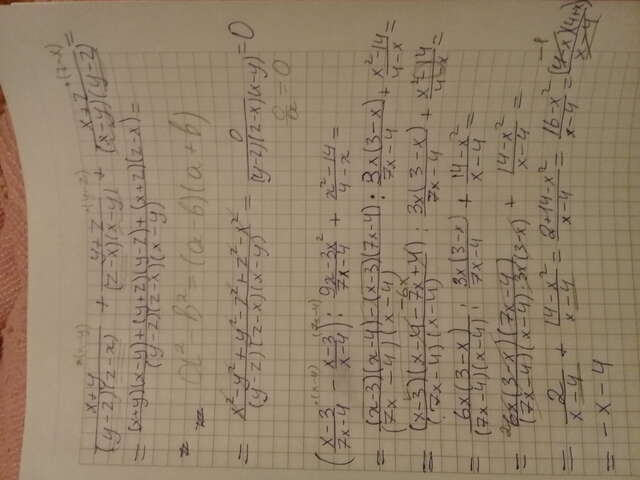 (x+y)^{·(x-y)}/((y-z)(z-x)) + (y+z)^{·(y-z)}/((z-x)(x-y)) + (x+z)^{·(z-x)}/((x-y)(y-z)) =
= ((x+y)(x-y)+(y+z)(y-z)+(x+z)(z-x))/((y-z)(z-x)(x-y)) =
= a²-b²=(a-b)(a+b)
= (x²-y²+y²-z²+z²-x²)/((y-z)(z-x)(x-y)) = 0/((y-z)(z-x)(x-y)) = 0
0/a = 0
((x-3)^{·(x-4)}/(7x-4) - (x-3)^{(7x-4)}/(x-4)) : (9x-3x²)/(7x-4) + (x²-14)/(4-x) =
= ((x-3)(x-4)-(x-3)(7x-4))/((7x-4)(x-4)) : 3x(3-x)/(7x-4) + (x²-14)/(4-x) =
-6x
= ((x-3)(x-4-7x+4))/((7x-4)(x-4)) : 3x(3-x)/(7x-4) + (x²-14)/(4-x) =
= 6x(3-x)/((7x-4)(x-4)) : 3x(3-x)/(7x-4) + (14-x²)/(x-4) =
= ²6x(3-x)(7x-4)/((7x-4)(x-4)·3x(3-x)) + (14-x²)/(x-4) =
= 2/(x-4) + (14-x²)/(x-4) = (2+14-x²)/(x-4) = (16-x²)/(x-4) = (4-x)^{-1}(4+x)/(x-4)
= -x-4